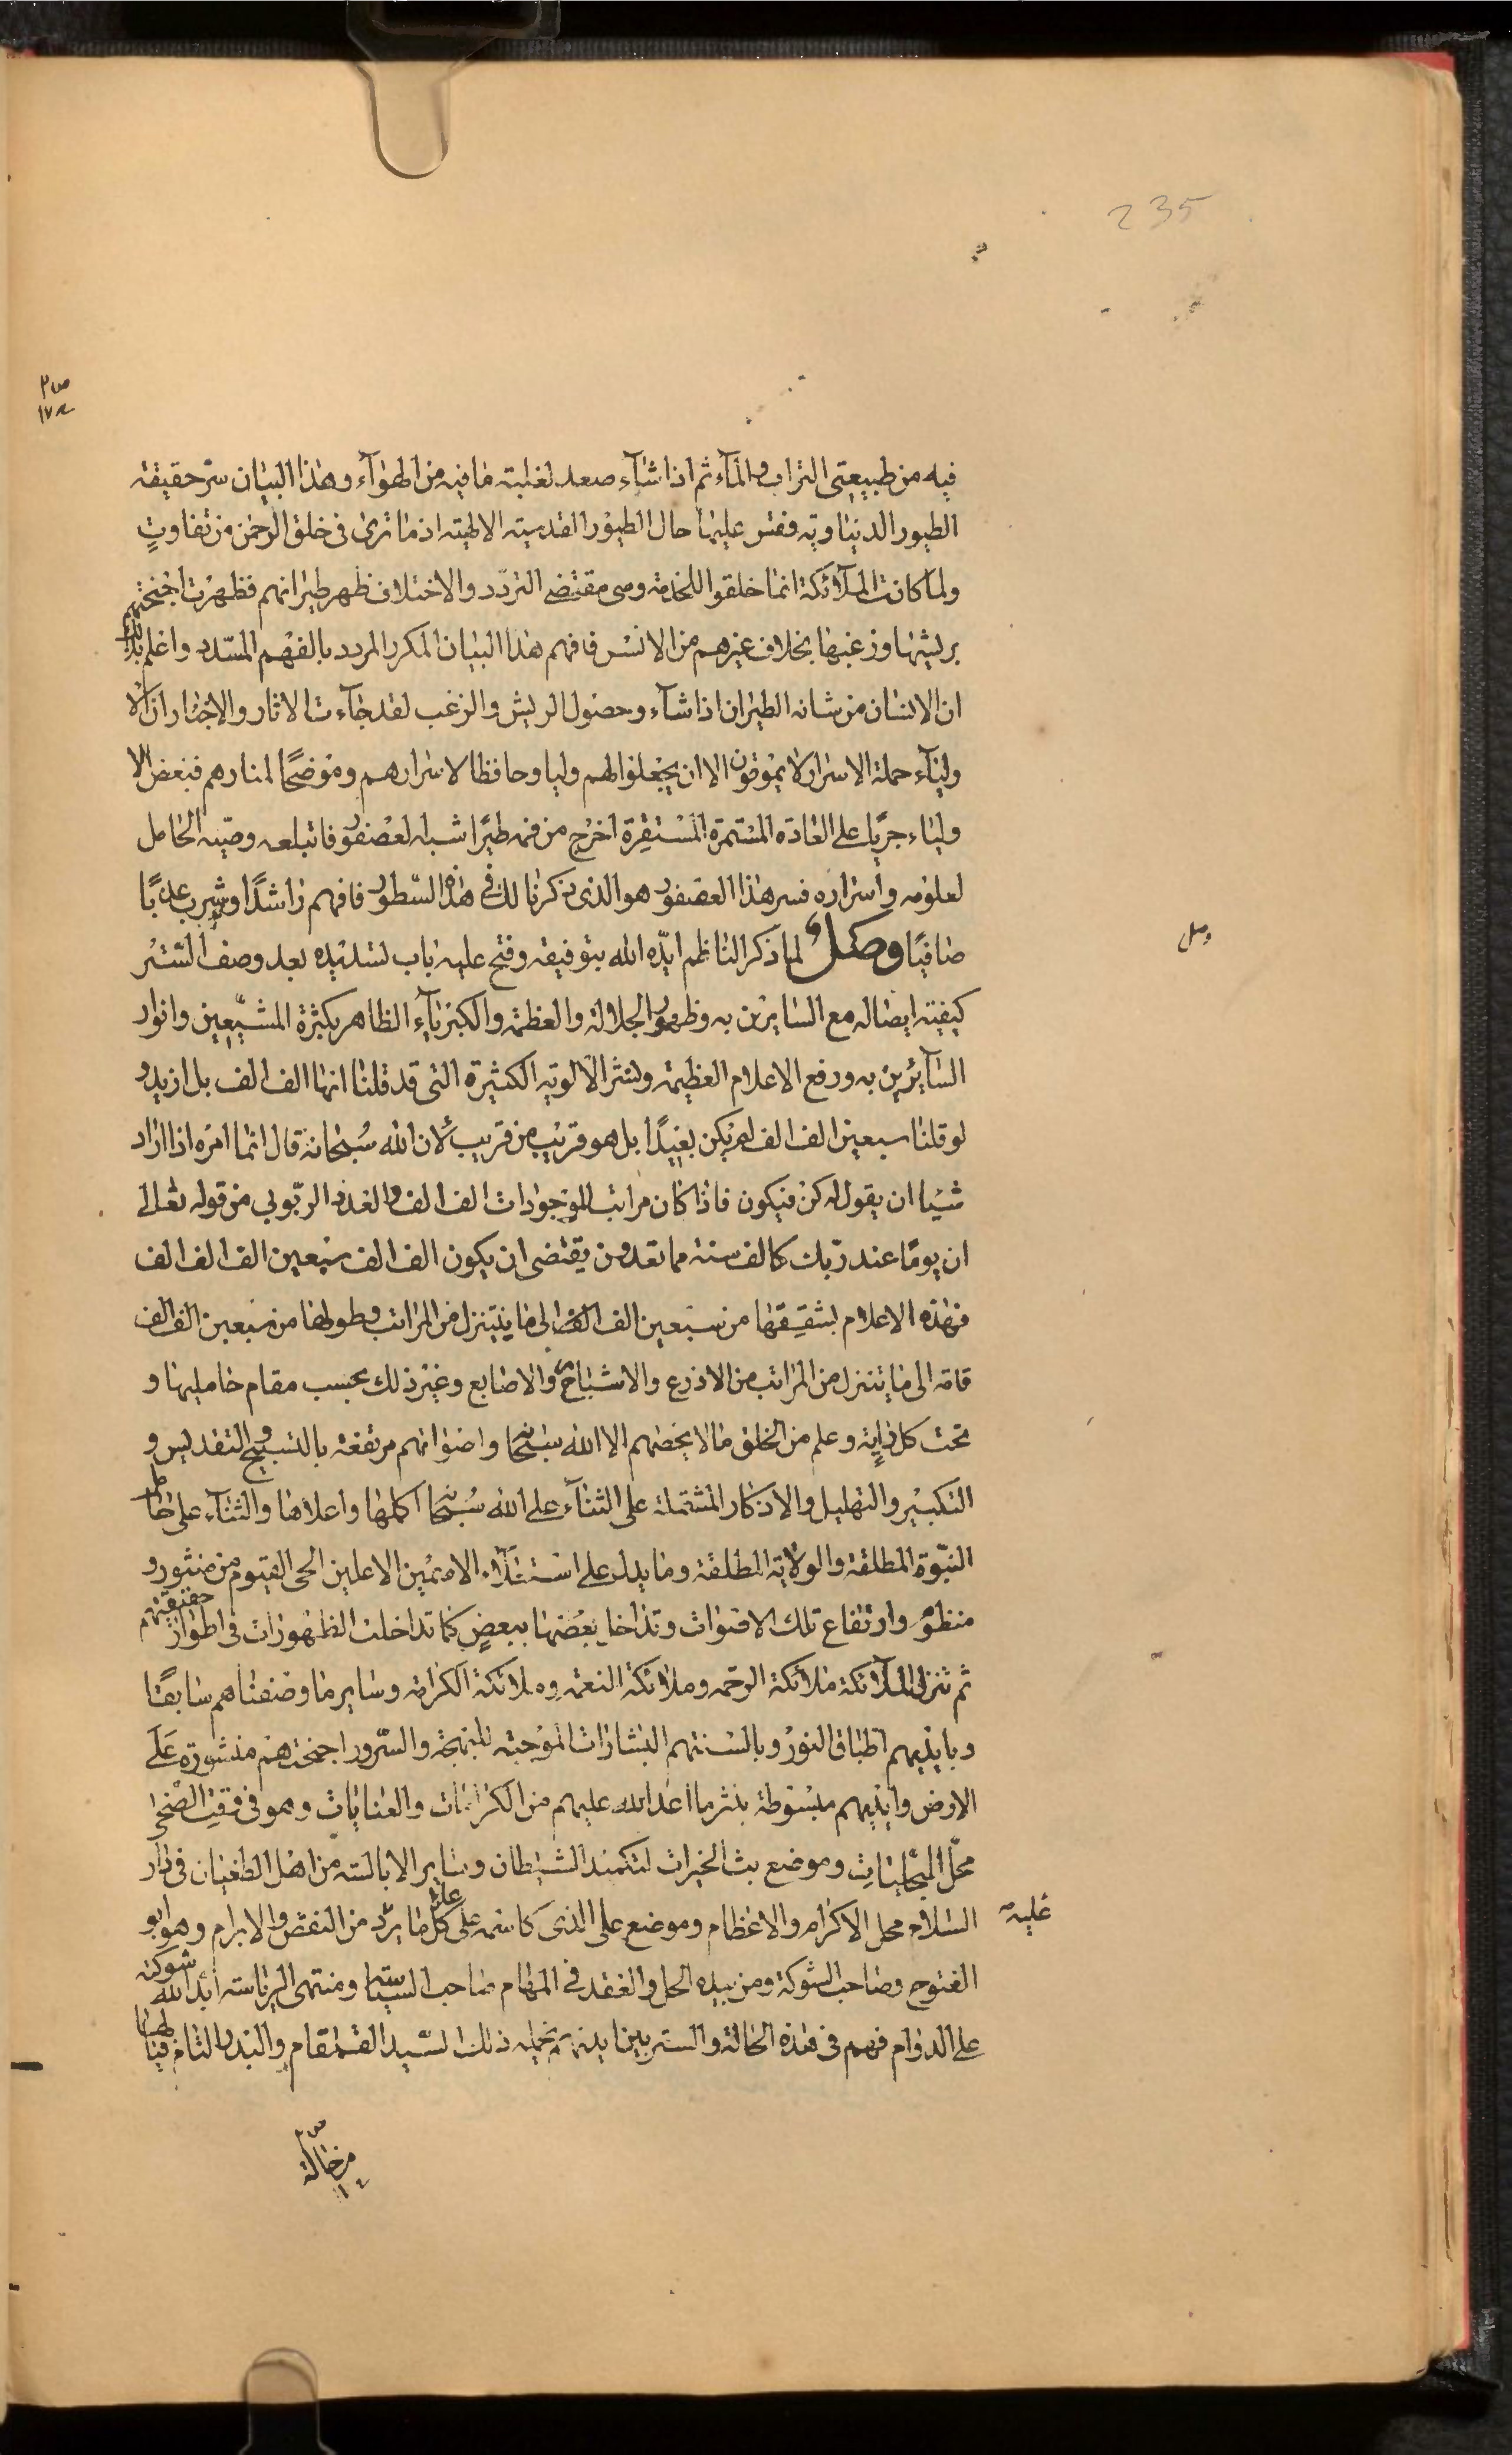 235
فيه من طبيعتى التراب والمآء ثم اذا شآء صعد لغلبته ما فيه من الهوآء وهذا البيان سرّ حقيقة
الطيور الدنياوية وفقس عليها حال الطيور القدسية الالهية اذ ما ترى فى خلق الرحمن من تفاوتٍ
ولما كانت الملآئكة انما خلقوا للخدمة وهى مقتضى التردّد والاختلاف ظهر طيرانهم فظهرت اجنحتهم
بريشها وزغبها بخلاف غيرهم من الانس فافهم هذا البيان المكرر المردد بالفهم المسّدد واعلم
ان الانسان من شانه الطيران اذا شآء وحصول الريش والزغب لقد جآءت الاثار والاخبار ان الا
وليآء حملة الاسرار لا يموتون الا ان يجعلوا لهم وليا وحافظا لاسرارهم وموضحًا لمنارهم فبعض الا
ولياء جريًا على العادة المستمرة المستقرة اخرج من فمه طيرًا شبه العصفور فابتلعه وصيّه الحامل
لعلومه واسراره فسر هذا العصفور هو الذى ذكرنا لك فى هذه السّطور فافهم راشدًا واشرب عذبًا
صافيًا وصل لما ذكر الناظم ايّده الله بتوفيقه وفتح عليه باب تسديده بعد وصف الستر
وصل
كيفية ايصاله مع السايرين به وظهور الجلالة والعظمة والكبريآء الظاهر بكثرة المشيّعين وانوار
السآيرين به ورفع الاعلام العظيمة ونشر الالوية الكثيرة التى قد قلنا انها الف الف بل ازيد و
لو قلنا سبعين الف الف لم يكن بعيدًا بل هو قريب من قريب لان الله سُبحانه قال انما امره اذا اراد
شيئا ان يقول له كن فيكون فاذا كان مراتب الموجودات الف الف والعدد الربّوبي من قوله تعالى
ان يومًا عند ربّك كالف سنة مما تعدون يقتضى ان يكون الف الف سبعين الف الف الف
فهذه الاعلام بشققها من سبعين الف الف الى ما يتنزل من المراتب وطولها من سبعين الف الف
قامة الى ما يتنزل من المراتب من الاذرع والاشباح والاصابع وغير ذلك بحسب مقام حامليها و
تحت كل راية وعلم من الخلق ما لا يحصهم الا الله سُبحانه واصواتهم مرتفعة بالتسبيح والتقديس و
التكبير والتهليل والاذكار المشتملة على الثنآء على الله سُبحانه اكملها واعلاها والثنآء على حامل
النبّوة المطلقة والولاية المطلقة وما يدل على استنآد الاسمين الاعلين الحى القيوم من منثور و
منظوم وارتفاع تلك الاصوات وتداخل بعضها ببعضٍ كما تداخلت الظهورات فى اطوار حقيقتهم
ثم تنزل الملآئكة ملآئكة الرحمه وملائكة النعمة وملائكة الكرامة وساير ما وصفناهم سابقًا
وبايديهم اطباق النور وبالسنتهم البشارات الموجبة للبهجة والسّرور اجنحتهم منشورة على
الارض وايديهم مبسوطة بنثر ما اعد الله عليهم من الكرامات والعنايات وهو فى وقت الضحى
محلّ التجليات وموضع بث الخيرات لتكميد الشيطان وساير الابالسة من اهل الطغيان فى دار
السلام محل الاكرام والاعظام وموضع على الذى كاسمه على كل ما يرد من النقض والابرام وهو ابو
علية
الفتوح وصاحب الشوكة ومن بيده الحل والعقد فى المهام صاحب السياسة ومنتهى الرياسة ابّد الله شوكته
على الدوام فهم فى هذه الحالة والستر بين ايديهم يحمله ذلك السّيد القمقام والبدر التام فيالها
من حالة